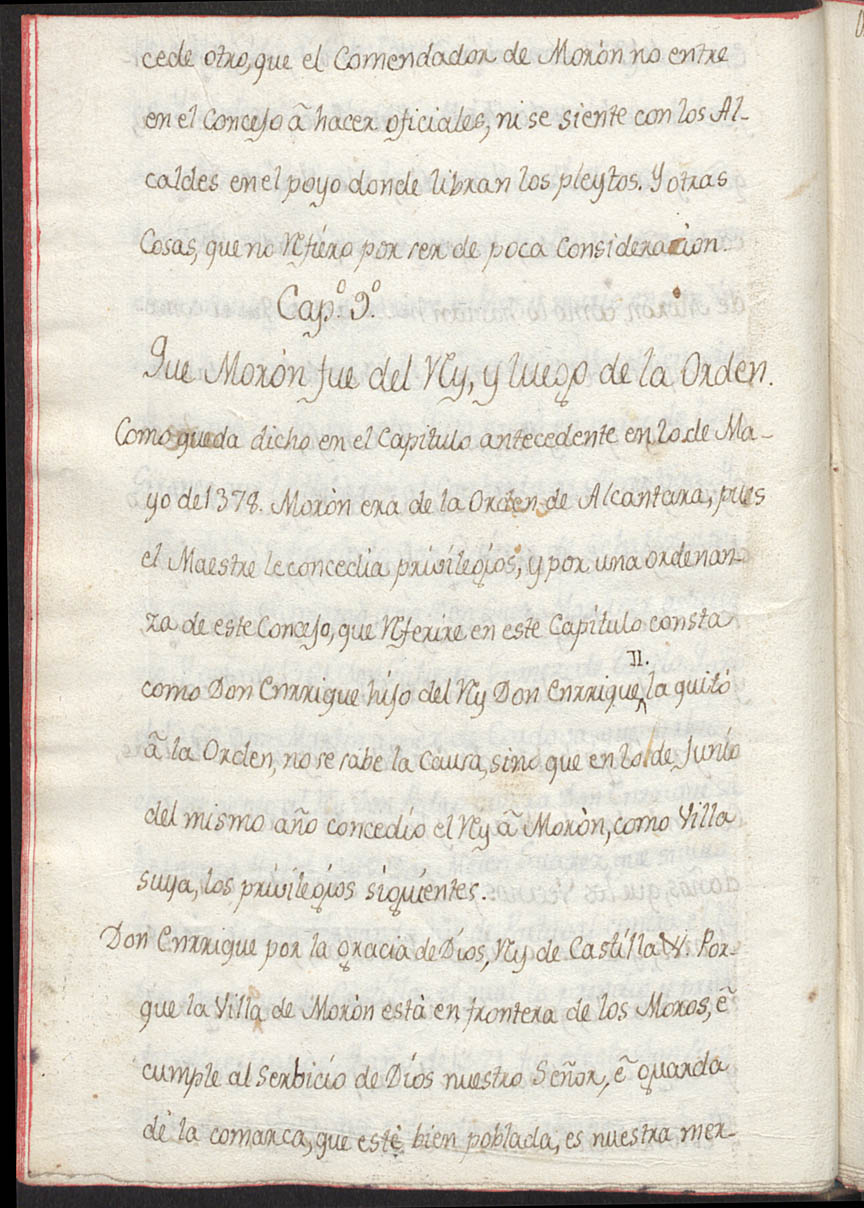 cede otro, que el Comendador de Moròn no entre
en el Concejo ã hacer oficiales, ni se siente con los Al-
caldes en el poyo donde libran los pleytos. Y otras
Cosas, que no Refiero por ser de poca Consideracion.
Cap.º 9.º
Que Moròn fue del Rey, y luego de la Orden.
Como queda dicho en el Capitulo antecedente en lo de Ma-
yo de 1378. Moròn era de la Orden de Alcantara, pues
el Maestre le concedia privilegios, y por una ordenan-
za de este Concejo, que Referire en este Capitulo consta
como Don Enrrique hijo del Rey Don Enrrique II. la quitò
ã la Orden, no se sabe la causa, sino que en lo de Junio
del mismo año concedio el Rey ã Moròn, como Villa
suya, los privilegios siguientes.
Don Enrrique por la gracia de Dios, Rey de Castilla &. Por-
que la Villa de Moròn està en frontera de los Moros, ẽ
cumple al Serbicio de Dios nuestro Señor, ẽ guarda
de la comarca, que estè bien poblada, es nuestra mer-